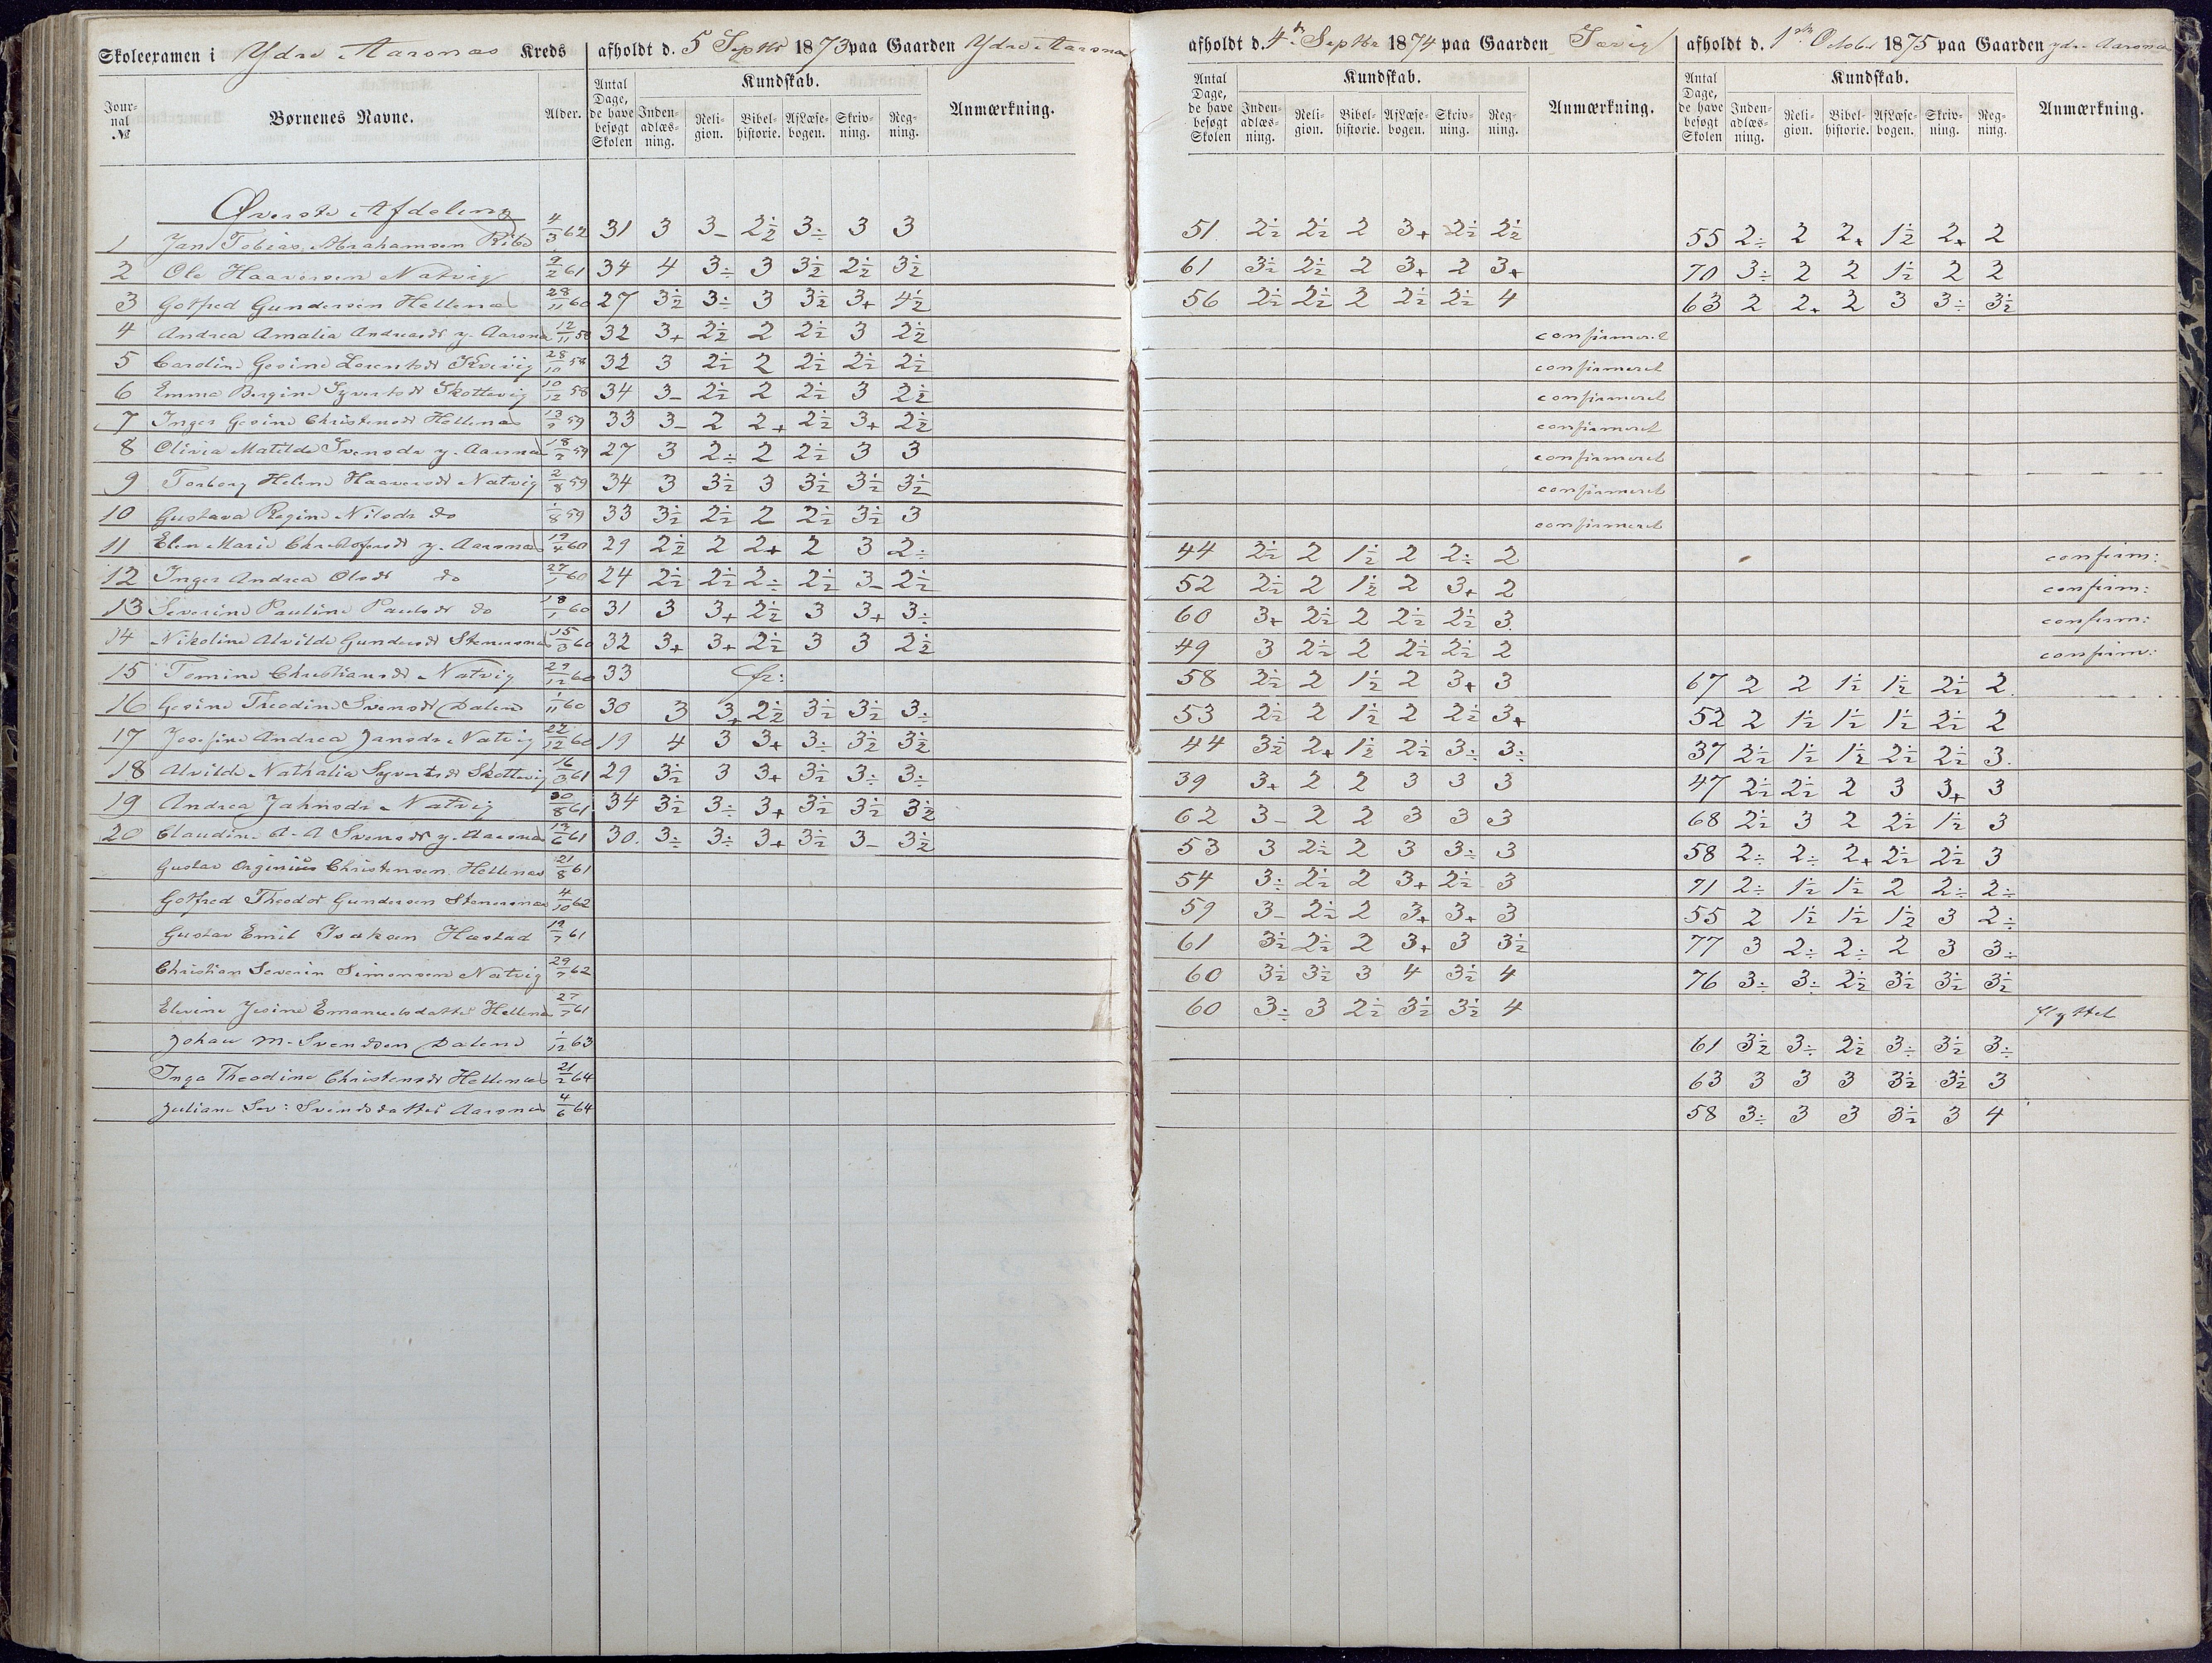 Skoleexamen i Ydre Aarsnæs Kreds afholdt d. 5 Septbr 1873 paa Gaarden Ydre Aarsnæs
afholdt d. 4de Septbr 1874 paa Gaarden
afholdt d. 1ste October 1875 paa Gaarden ydre Aarsnæs
Jour-nal № Børnenes Navne. Alder. Antal Dage, de have besøgt Skolen Kundskab. Inden-adlæs-ning. Reli-gion. Bibel-historie. AfLæse-bogen. Skriv-ning. Reg-ning. Anmærkning.
Antal Dage, de have besøgt Skolen Kundskab. Inden-adlæs-ning. Reli-gion. Bibel-historie. AfLæse-bogen. Skriv-ning. Reg-ning. Anmærkning.
Antal Dage, de have besøgt Skolen Kundskab. Inden-adlæs-ning. Reli-gion. Bibel-historie. AfLæse-bogen. Skriv-ning. Reg-ning. Anmærkning.
Øverste Afdeling
1 Jans Tobias Abrahamsen Ribe 4/3 62 31 3 3- 2½ 3÷ 3 3 51 2½ 2½ 2 3+ 2½ 2½ 55 2÷ 2 2+ 1½ 2+ 2
2 Ole Haaversen Natvig 9/2 61 34 4 3÷ 3 3½ 2½ 3½ 61 3½ 2½ 2 3+ 2 3+ 70 3÷ 2 2 1½ 2 2
3 Gotfred Gundersen Hellenæs 28/11 60 27 3½ 3÷ 3 3½ 3+ 4½ 56 2½ 2½ 2 2½ 2½ 4 63 2 2+ 2 3 3÷ 3½
4 Andrea Amalia Andreasdt y. Aarsnæs 12/11 58 32 3+ 2½ 2 2½ 3 2½ confirmeret
5 Caroline Gesine Lorentsdt 28/10 58 32 3 2½ 2 2½ 2½ 2½ confirmeret
6 Emma Bergine Syvertsdt Skottevig 10/12 58 34 3- 2½ 2 2½ 3 2½ confirmeret
7 Inger Gesine Christensdt Hellenæs 59 33 3- 2 2+ 2½ 3+ 2½ confirmeret
8 Olivia Matilde Svensdr y. Aarsnæs 59 27 3 2÷ 2 2½ 3 3 confirmeret
9 Torborg Helene Haaversdt Natvig 2/8 59 34 3 3½ 3 3½ 3½ 3½ confirmeret
10 Gustava Regine Nilsdr do 1/8 59 33 3½ 2½ 2 2½ 3½ 3 confirmeret
11 Elen Marie Christofersdt y. Aarsnæs 19/4 60 29 2½ 2 2+ 2 3 2÷ 44 2½ 2 1½ 2 2÷ 2 confirm:
12 Inger Andrea Olsdt do 27/1 60 24 2½ 2½ 2÷ 2½ 3- 2½ 52 2½ 2 1½ 2 3+ 2 confirm:
13 Severine Pauline Paulsdt do 18/1 60 31 3 3+ 2½ 3 3+ 3÷ 60 3+ 2½ 2 2½ 2½ 3 confirm:
14 Nikoline Alvilde Gundersdt Stenersnæs 15/3 60 32 3+ 3+ 2½ 3 3 2½ 49 3 2½ 2 2½ 2½ 2 confirm:
15 Tomine Christiansdt Natvig 29/12 60 33 fr: 58 2½ 2 1½ 2 3+ 3 67 2 2 1½ 1½ 2½ 2
16 Gesine Theodine Svensdt Dalene 1/11 60 30 3 3+ 2½ 3½ 3½ 3÷ 53 2½ 2 1½ 2 2½ 3+ 52 2 1½ 1½ 1½ 2½ 2
17 Josefine Andrea Jansdr Natvig 22/12 60 19 4 3 3+ 3÷ 3½ 3½ 44 3½ 2+ 1½ 2½ 3÷ 3÷ 37 2½ 1½ 1½ 2½ 2½ 3
18 Alvilde Nathalia Syvertsdt Skottevig 16/3 61 29 3½ 3 3+ 3½ 3÷ 3÷ 39 3+ 2 2 3 3 3 47 2½ 2½ 2 3 3+ 3
19 Andrea Jahnsdr Natvig 30/8 61 34 3½ 3÷ 3+ 3½ 3½ 3½ 62 3- 2 2 3 3 3 68 2½ 3 2 2½ 1½ 3
20 Claudine A. A Svensdt y. Aarsnæs 61 30 3÷ 3÷ 3+ 3½ 3- 3½ 53 3 2½ 2 3 3÷ 3 58 2÷ 2÷ 2+ 2½ 2½ 3
Gustav Orginius Christensen Hellenæs 21/8 61 54 3÷ 2½ 2 3+ 2½ 3 71 2÷ 1½ 1½ 2 2÷ 2÷
Gotfred Theodor Gundersen Stenersnæs 4/10 62 59 3- 2½ 2 3+ 3+ 3 55 2 1½ 1½ 1½ 3 2÷
Gustav Emil Isaksen Hæstad 19/7 61 61 3½ 2½ 2 3+ 3 3½ 77 3 2÷ 2÷ 2 3 3÷
Christian Severin Simonsen Natvig 29/7 62 60 3½ 3½ 3 4 3½ 4 76 3÷ 3÷ 2½ 3½ 3½ 3½
Elevine Jesine Emanuelsdatter Hellenæs 27/7 61 60 3÷ 3 2½ 3½ 3½ 4 flyttet
Johan M. Svendsen Dalene 1/12 63 61 3½ 3÷ 2½ 3÷ 3½ 3÷
Inga Theodine Christensdt Hellenæs 21/2 64 63 3 3 3 3½ 3½ 3
Juliane Sev: Svendsdatter Aarsnæs 4/6 64 58 3÷ 3 3 3½ 3 4